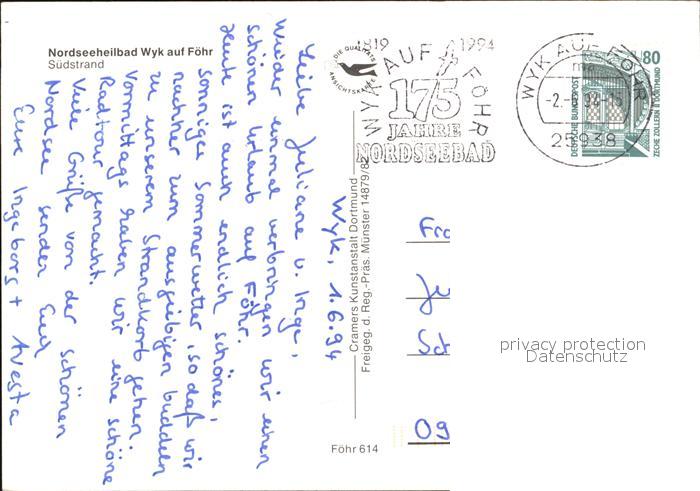 Nordseeheilbad Wyk auf Föhr
Südstrand
Wyk, 1.6.94
Liebe Juliane u. Inge,
Wieder einmal verbringen wir einen
schönen Urlaub auf Föhr.
Heute ist auch endlich schönes,
sonniges Sommerwetter, so daß wir
nachher zum ausgiebigen buddeln
zu unserem Strandkorb gehen.
Vormittags haben wir eine schöne
Radtour gemacht.
Viele Grüße von der schönen
Nordsee senden Euch
Eure Ingeborg + Avesta
Cramers Kunstanstalt Dortmund
Freigeg. d. Reg.-Präs. Münster 14879/82
Föhr 614
DIE QUALITÄTS
ANSICHTSKARTE
1819 1994
WYK AUF FÖHR
175
JAHRE
NORDSEEBAD
WYK AUF FÖHR
-2.-6.94-15
25938
80
DEUTSCHE BUNDESPOST
ZECHE ZOLLERN II DORTMUND
Fr
Sch
09
privacy protection
Datenschutz